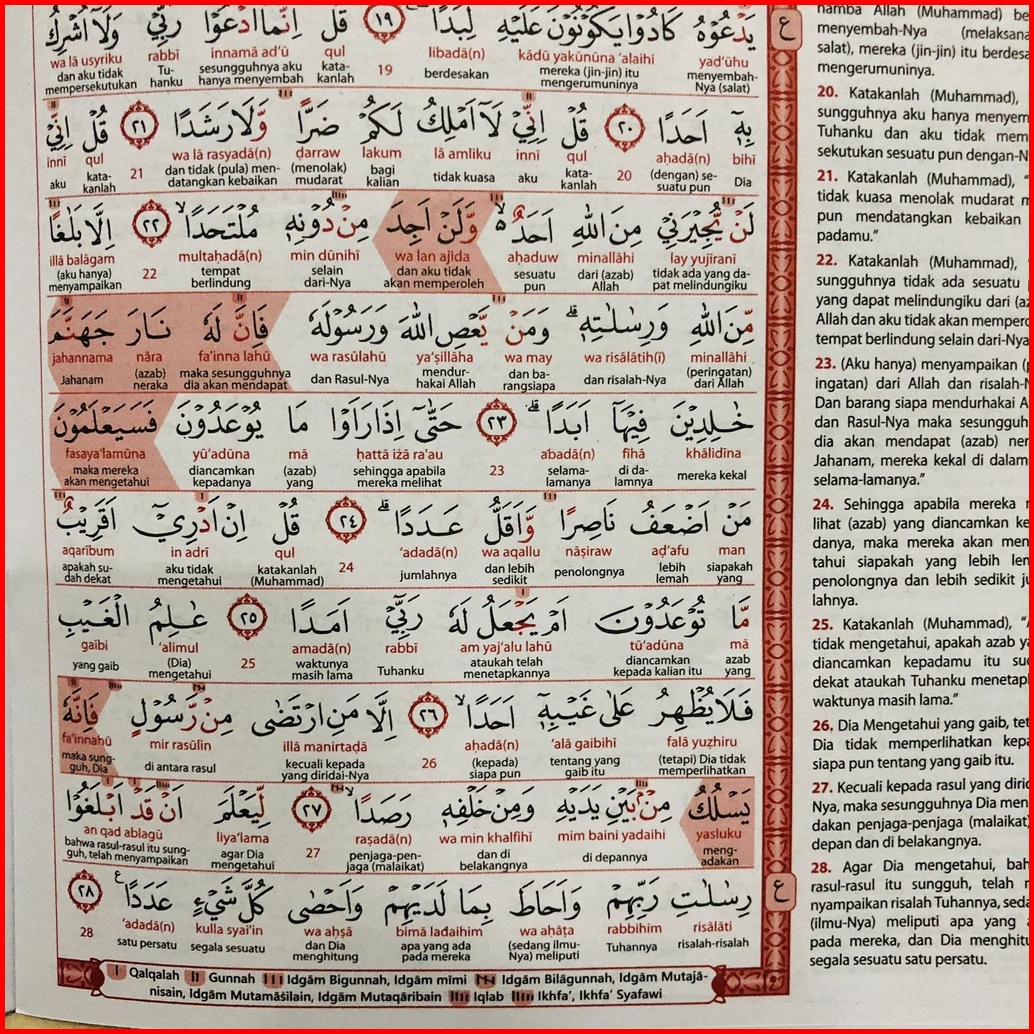 يَدْعُوْهُ كَادُوْا يَكُوْنُوْنَ عَلَيْهِ لِبَدًا ١٩ قُلْ اِنَّمَآ اَدْعُوْا رَبِّيْ وَلَآ اُشْرِكُ
yad‘ūhu kādū yakūnūna ‘alaihi libadā(n) 19 qul innamā ad‘ū rabbī wa lā usyriku
menyembah-Nya (salat) mereka (jin-jin) itu mengerumuninya berdesakan kata-kanlah sesungguhnya aku hanya menyembah Tu-hanku dan aku tidak mempersekutukan
بِهٖٓ اَحَدًا ٢٠ قُلْ اِنِّيْ لَآ اَمْلِكُ لَكُمْ ضَرًّا وَّلَا رَشَدًا ٢١ قُلْ اِنِّيْ
bihī aḥadā(n) 20 qul innī lā amliku lakum ḍarraw wa lā rasyadā(n) 21 qul innī
Dia (dengan) se-suatu pun kata-kanlah aku tidak kuasa bagi kalian (menolak) mudarat dan tidak (pula) men-datangkan kebaikan kata-kanlah aku
لَنْ يُّجِيْرَنِيْ مِنَ اللّٰهِ اَحَدٌ وَّلَنْ اَجِدَ مِنْ دُوْنِهٖ مُلْتَحَدًا ٢٢ اِلَّا بَلٰغًا
lay yujīranī minallāhi aḥaduw wa lan ajida min dūnihī multaḥadā(n) 22 illā balāgam
tidak ada yang da-pat melindungiku dari (azab) Allah sesuatu pun dan aku tidak akan memperoleh selain dari-Nya tempat berlindung (aku hanya) menyampaikan
مِّنَ اللّٰهِ وَرِسٰلٰتِهٖ وَمَنْ يَّعْصِ اللّٰهَ وَرَسُوْلَهٗ فَاِنَّ لَهٗ نَارَ جَهَنَّمَ
minallāhi wa risālātih(ī) wa may ya‘ṣillāha wa rasūlahū fa'inna lahū nāra jahannama
(peringatan) dari Allah dan risalah-Nya dan ba-rangsiapa mendur-hakai Allah dan Rasul-Nya maka sesungguhnya dia akan mendapat (azab) neraka Jahanam
خٰلِدِيْنَ فِيْهَآ اَبَدًا ٢٣ حَتّٰىٓ اِذَا رَاَوْا مَا يُوْعَدُوْنَ فَسَيَعْلَمُوْنَ
khālidīna fīhā abadā(n) 23 ḥattā iżā ra'au mā yū‘adūna fasaya‘lamūna
mereka kekal di da-lamnya selama-lamanya sehingga apabila mereka melihat (azab) yang diancamkan kepadanya maka mereka akan mengetahui
مَنْ اَضْعَفُ نَاصِرًا وَّاَقَلُّ عَدَدًا ٢٤ قُلْ اِنْ اَدْرِيْٓ اَقَرِيْبٌ
man aḍ‘afu nāṣiraw wa aqallu ‘adadā(n) 24 qul in adrī aqarībum
siapakah yang lebih lemah penolongnya dan lebih sedikit jumlahnya katakanlah (Muhammad) aku tidak mengetahui apakah su-dah dekat
مَّا تُوْعَدُوْنَ اَمْ يَجْعَلُ لَهٗ رَبِّيْٓ اَمَدًا ٢٥ عٰلِمُ الْغَيْبِ
mā tū‘adūna am yaj‘alu lahū rabbī amadā(n) 25 ‘alimul gaibi
azab yang diancamkan kepada kalian itu ataukah telah menetapkannya Tuhanku waktunya masih lama (Dia) mengetahui yang gaib
فَلَا يُظْهِرُ عَلٰى غَيْبِهٖٓ اَحَدًا ٢٦ اِلَّا مَنِ ارْتَضٰى مِنْ رَّسُوْلٍ فَاِنَّهٗ
falā yuẓhiru ‘alā gaibihī aḥadā(n) 26 illā manirtaḍā mir rasūlin fa'innahū
(tetapi) Dia tidak memperlihatkan tentang yang gaib itu (kepada) siapa pun kecuali kepada yang diridai-Nya di antara rasul maka sung-guh, Dia
يَسْلُكُ مِنْۢ بَيْنِ يَدَيْهِ وَمِنْ خَلْفِهٖ رَصَدًا ٢٧ لِّيَعْلَمَ اَنْ قَدْ اَبْلَغُوْا
yasluku mim baini yadaihi wa min khalfihī raṣadā(n) 27 liya‘lama an qad ablagū
meng-adakan di depannya dan di belakangnya penjaga-pen-jaga (malaikat) agar Dia mengetahui bahwa rasul-rasul itu sung-guh, telah menyampaikan
رِسٰلٰتِ رَبِّهِمْ وَاَحَاطَ بِمَا لَدَيْهِمْ وَاَحْصٰى كُلَّ شَيْءٍ عَدَدًا ٢٨
risālāti rabbihim wa aḥāṭa bimā ladaihim wa aḥṣā kulla syai'in ‘adadā(n) 28
risalah-risalah Tuhannya (sedang ilmu-Nya) meliputi apa yang ada pada mereka dan Dia menghitung segala sesuatu satu persatu
Qalqalah Gunnah Idgām Bigunnah, Idgām mīmi Idgām Bilāgunnah, Idgām Mutajā-
nisain, Idgām Mutamāṡilain, Idgām Mutaqāribain Iqlab Ikhfa’, Ikhfa’ Syafawi
ع
ع
hamba Allah (Muhammad)
menyembah-Nya (melaksana
salat), mereka (jin-jin) itu berdesa
mengerumuninya.
20. Katakanlah (Muhammad),
sungguhnya aku hanya menyem
Tuhanku dan aku tidak mem
sekutukan sesuatu pun dengan-N
21. Katakanlah (Muhammad), “
tidak kuasa menolak mudarat m
pun mendatangkan kebaikan
padamu.”
22. Katakanlah (Muhammad),
sungguhnya tidak ada sesuatu
yang dapat melindungiku dari (az
Allah dan aku tidak akan memperc
tempat berlindung selain dari-Nya
23. (Aku hanya) menyampaikan (p
ingatan) dari Allah dan risalah-N
Dan barang siapa mendurhakai A
dan Rasul-Nya maka sesungguh
dia akan mendapat (azab) ner
Jahanam, mereka kekal di dalam
selama-lamanya.”
24. Sehingga apabila mereka
lihat (azab) yang diancamkan ke
danya, maka mereka akan men
tahui siapakah yang lebih len
penolongnya dan lebih sedikit ju
lahnya.
25. Katakanlah (Muhammad), “
tidak mengetahui, apakah azab ya
diancamkan kepadamu itu su
dekat ataukah Tuhanku menetap
waktunya masih lama.”
26. Dia Mengetahui yang gaib, tet
Dia tidak memperlihatkan kepa
siapa pun tentang yang gaib itu.
27. Kecuali kepada rasul yang dirid
Nya, maka sesungguhnya Dia men
dakan penjaga-penjaga (malaikat)
depan dan di belakangnya.
28. Agar Dia mengetahui, bah
rasul-rasul itu sungguh, telah
nyampaikan risalah Tuhannya, seda
(ilmu-Nya) meliputi apa yang
pada mereka, dan Dia menghitu
segala sesuatu satu persatu.